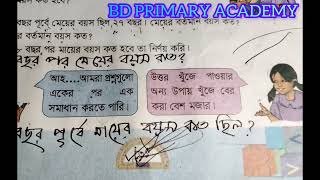 BD PRIMARY ACADEMY
বছর পূর্বে মেয়ের বয়স ছিল ২৭ বছর। মেয়ের বর্তমান বয়স কত?
র বর্তমান বয়স কত?
বছর পর মায়ের বয়স কত হবে তা নির্ণয় করি।
বছর পর মায়ের বয়স কত?
আহ্....আমরা প্রশ্নগুলো
একের পর এক
সমাধান করতে পারি।
উত্তর খুঁজে পাওয়ার
অন্য উপায় খুঁজে বের
করা বেশ মজার।
বছর পূর্বে মায়ের বয়স কত ছিল?